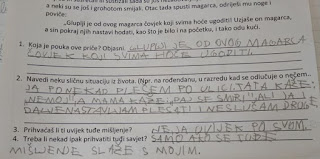 a neki su se još i grohotom smijali. Otac tada spusti magarca, odriješi mu noge i
poviče:
„Gluplji je od ovog magarca čovjek koji svima hoće ugoditi! Uzjaše on magarca,
a sin pokraj njih nastavi hodati, kao što je bilo i na početku, i tako odu kući.
1. Koja je pouka ove priče? Objasni. GLUPLJI JE OD OVOG MAGARCA
ČOVJEK KOJI SVIMA HOĆE UGODITI
2. Navedi neku sličnu situaciju iz života. (Npr. na rođendanu, u razredu kad se odlučuje o nečem...
JA PONEKAD PLEŠEM PO ULICI TATA KAŽE:
„NEMOJ", A MAMA KAŽE „DAJ SE SMIRI", ALI JA
DALJE NASTAVLJAM PLESATI I NE SLUŠAM DRUGE
3. Prihvaćaš li ti uvijek tuđe mišljenje? NE JA UVIJEK PO SVOM.
4. Treba li nekad ipak prihvatiti tuđi savjet? SAMO AKO SE TUĐE
MIŠLJENJE SLAŽE S MOJIM.